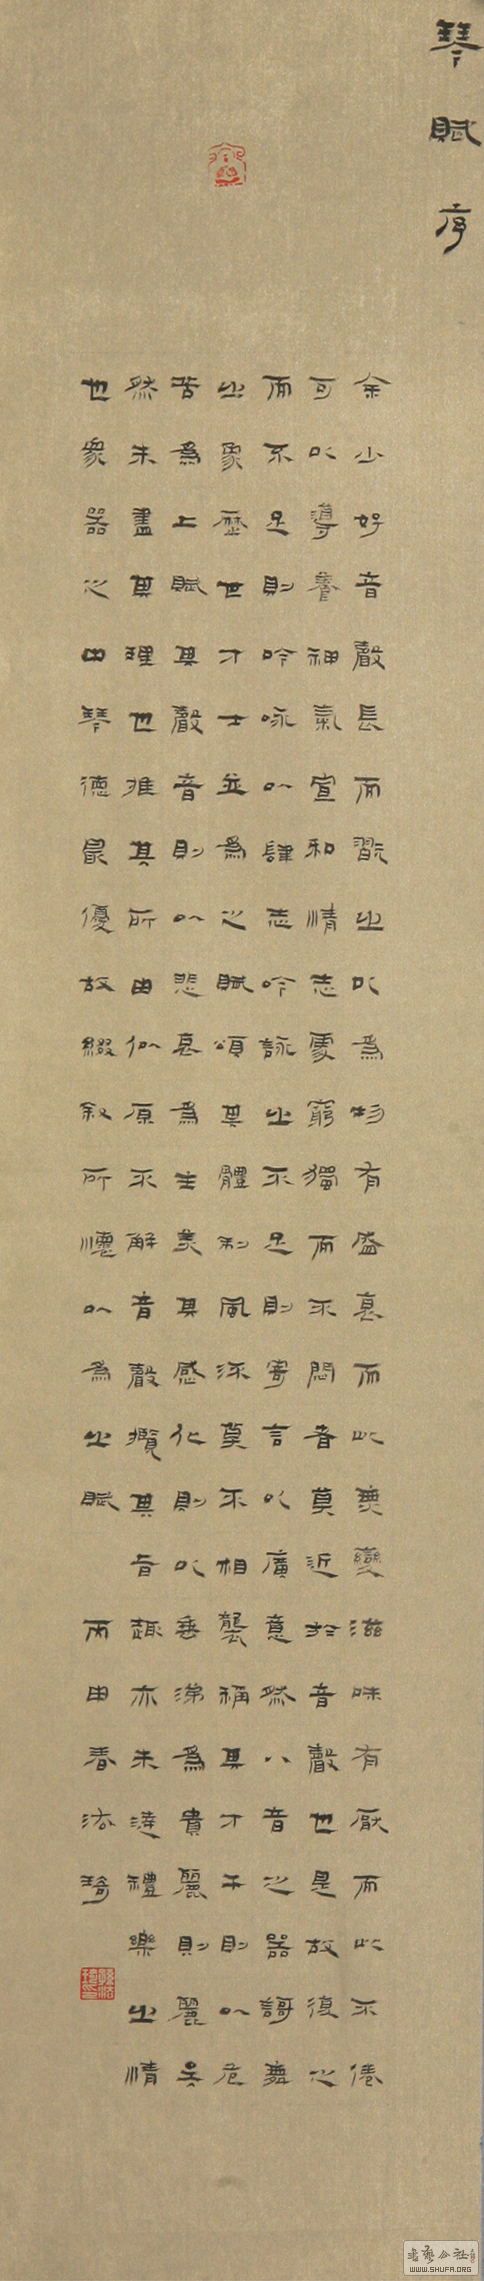 琴賦序
余少好音聲長而翫之以為物有盛衰而此無變滋味有厭而此不倦
可以導養神氣宣和情志處窮獨而不悶者莫近於音聲也是故復之
而不足則吟咏以肆志吟詠之不足則寄言以廣意然八音之器謌舞
之象歷世才士並為之賦頌其體制風流莫不相襲稱其才干則以危
苦為上賦其聲音則以悲哀為主美其感化則以垂涕為貴麗則麗矣
然未盡其理也推其所由似原不解音聲攬其旨趣亦未達禮樂之情
也眾器之中琴德最優故綴叙所懷以為之賦 丙申春琦
WWW.SHUFA.ORG